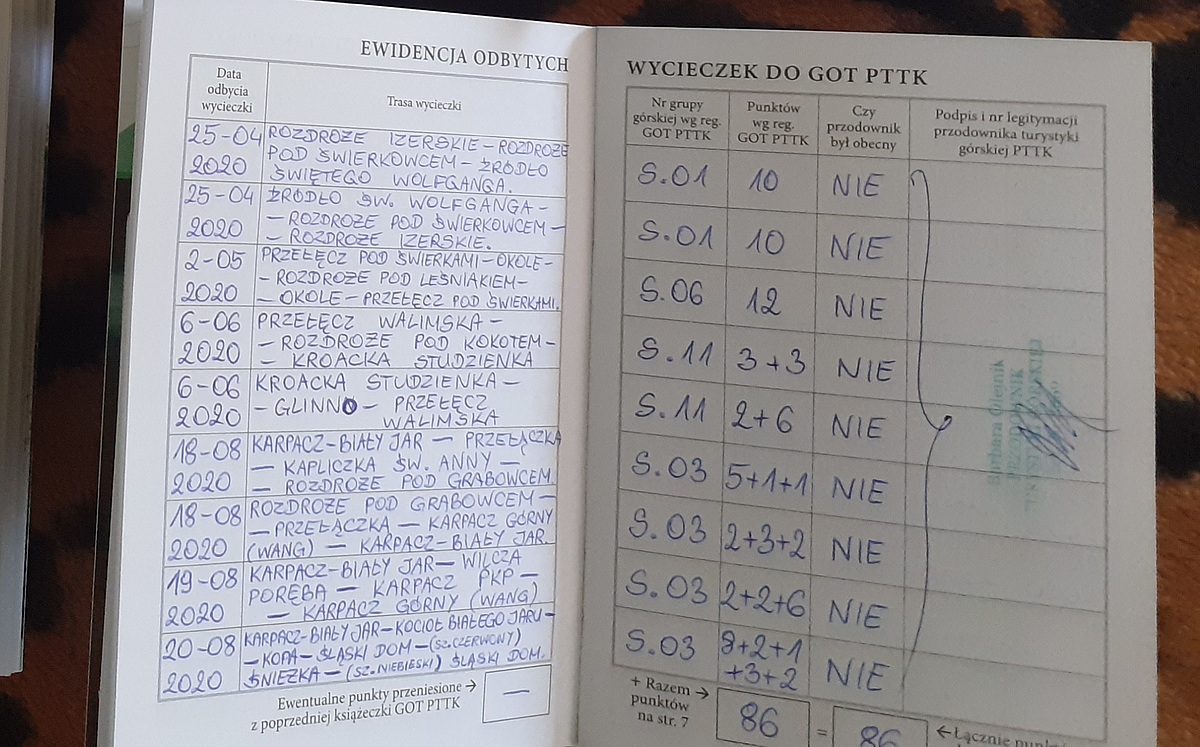 EWIDENCJA ODBYTYCH
Data
odbycia
wycieczki
Trasa wycieczki
25-04
2020
ROZDROŻE IZERSKIE – ROZDROŻE
POD ŚWIERKOWCEM – ŹRÓDŁO
ŚWIĘTEGO WOLFGANGA.
25-04
2020
ŹRÓDŁO ŚW. WOLFGANGA –
– ROZDROŻE POD ŚWIERKOWCEM –
– ROZDROŻE IZERSKIE.
2-05
2020
PRZEŁĘCZ POD ŚWIERKAMI – OKOLE –
– ROZDROŻE POD LEŚNIAKIEM –
– OKOLE – PRZEŁĘCZ POD ŚWIERKAMI.
6-06
2020
PRZEŁĘCZ WALIMSKA –
– ROZDROŻE POD KOKOTEM –
– KROACKA STUDZIENKA
6-06
2020
KROACKA STUDZIENKA –
– GLINNO – PRZEŁĘCZ
WALIMSKA
18-08
2020
KARPACZ-BIAŁY JAR — PRZEŁĄCZKA
— KAPLICZKA ŚW. ANNY —
— ROZDROŻE POD GRABOWCEM.
18-08
2020
ROZDROŻE POD GRABOWCEM —
— PRZEŁĄCZKA — KARPACZ GÓRNY
(WANG) — KARPACZ-BIAŁY JAR.
19-08
2020
KARPACZ-BIAŁY JAR — WILCZA
PORĘBA — KARPACZ PKP —
— KARPACZ GÓRNY (WANG)
20-08
2020
KARPACZ-BIAŁY JAR-KOCIOŁ BIAŁEGO JARU –
– KOPA – ŚLĄSKI DOM – (SZ. CZERWONY)
ŚNIEŻKA – (SZ. NIEBIESKI) ŚLĄSKI DOM.
Ewentualne punkty przeniesione →
z poprzedniej książeczki GOT PTTK
—
WYCIECZEK DO GOT PTTK
Nr grupy
górskiej wg reg.
GOT PTTK
Punktów
wg reg.
GOT PTTK
Czy
przodownik
był obecny
Podpis i nr legitymacji
przodownika turystyki
górskiej PTTK
S.01 10 NIE
S.01 10 NIE
S.06 12 NIE
S.11 3+3 NIE
S.11 2+6 NIE
S.03 5+1+1 NIE
S.03 2+3+2 NIE
S.03 2+2+6 NIE
S.03 8+2+1
+3+2 NIE
Barbara Olejnik
PRZODOWNIK
+ Razem →
punktów
na str. 7
86
=
86
← Łącznie